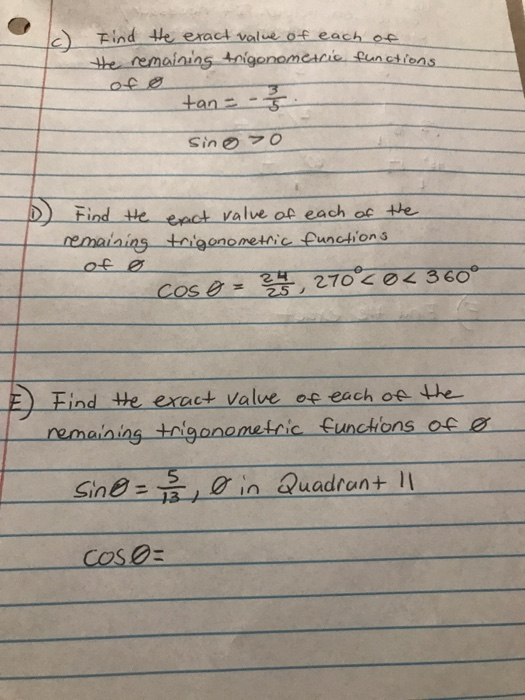 C) Find the exact value of each of
the remaining trigonometric functions
of θ
tan = - 3/5.
sin θ > 0
D) Find the exact value of each of the
remaining trigonometric functions
of θ
cos θ = 24/25, 270° < θ < 360°
E) Find the exact value of each of the
remaining trigonometric functions of θ
sin θ = 5/13, θ in Quadrant II
cos θ =